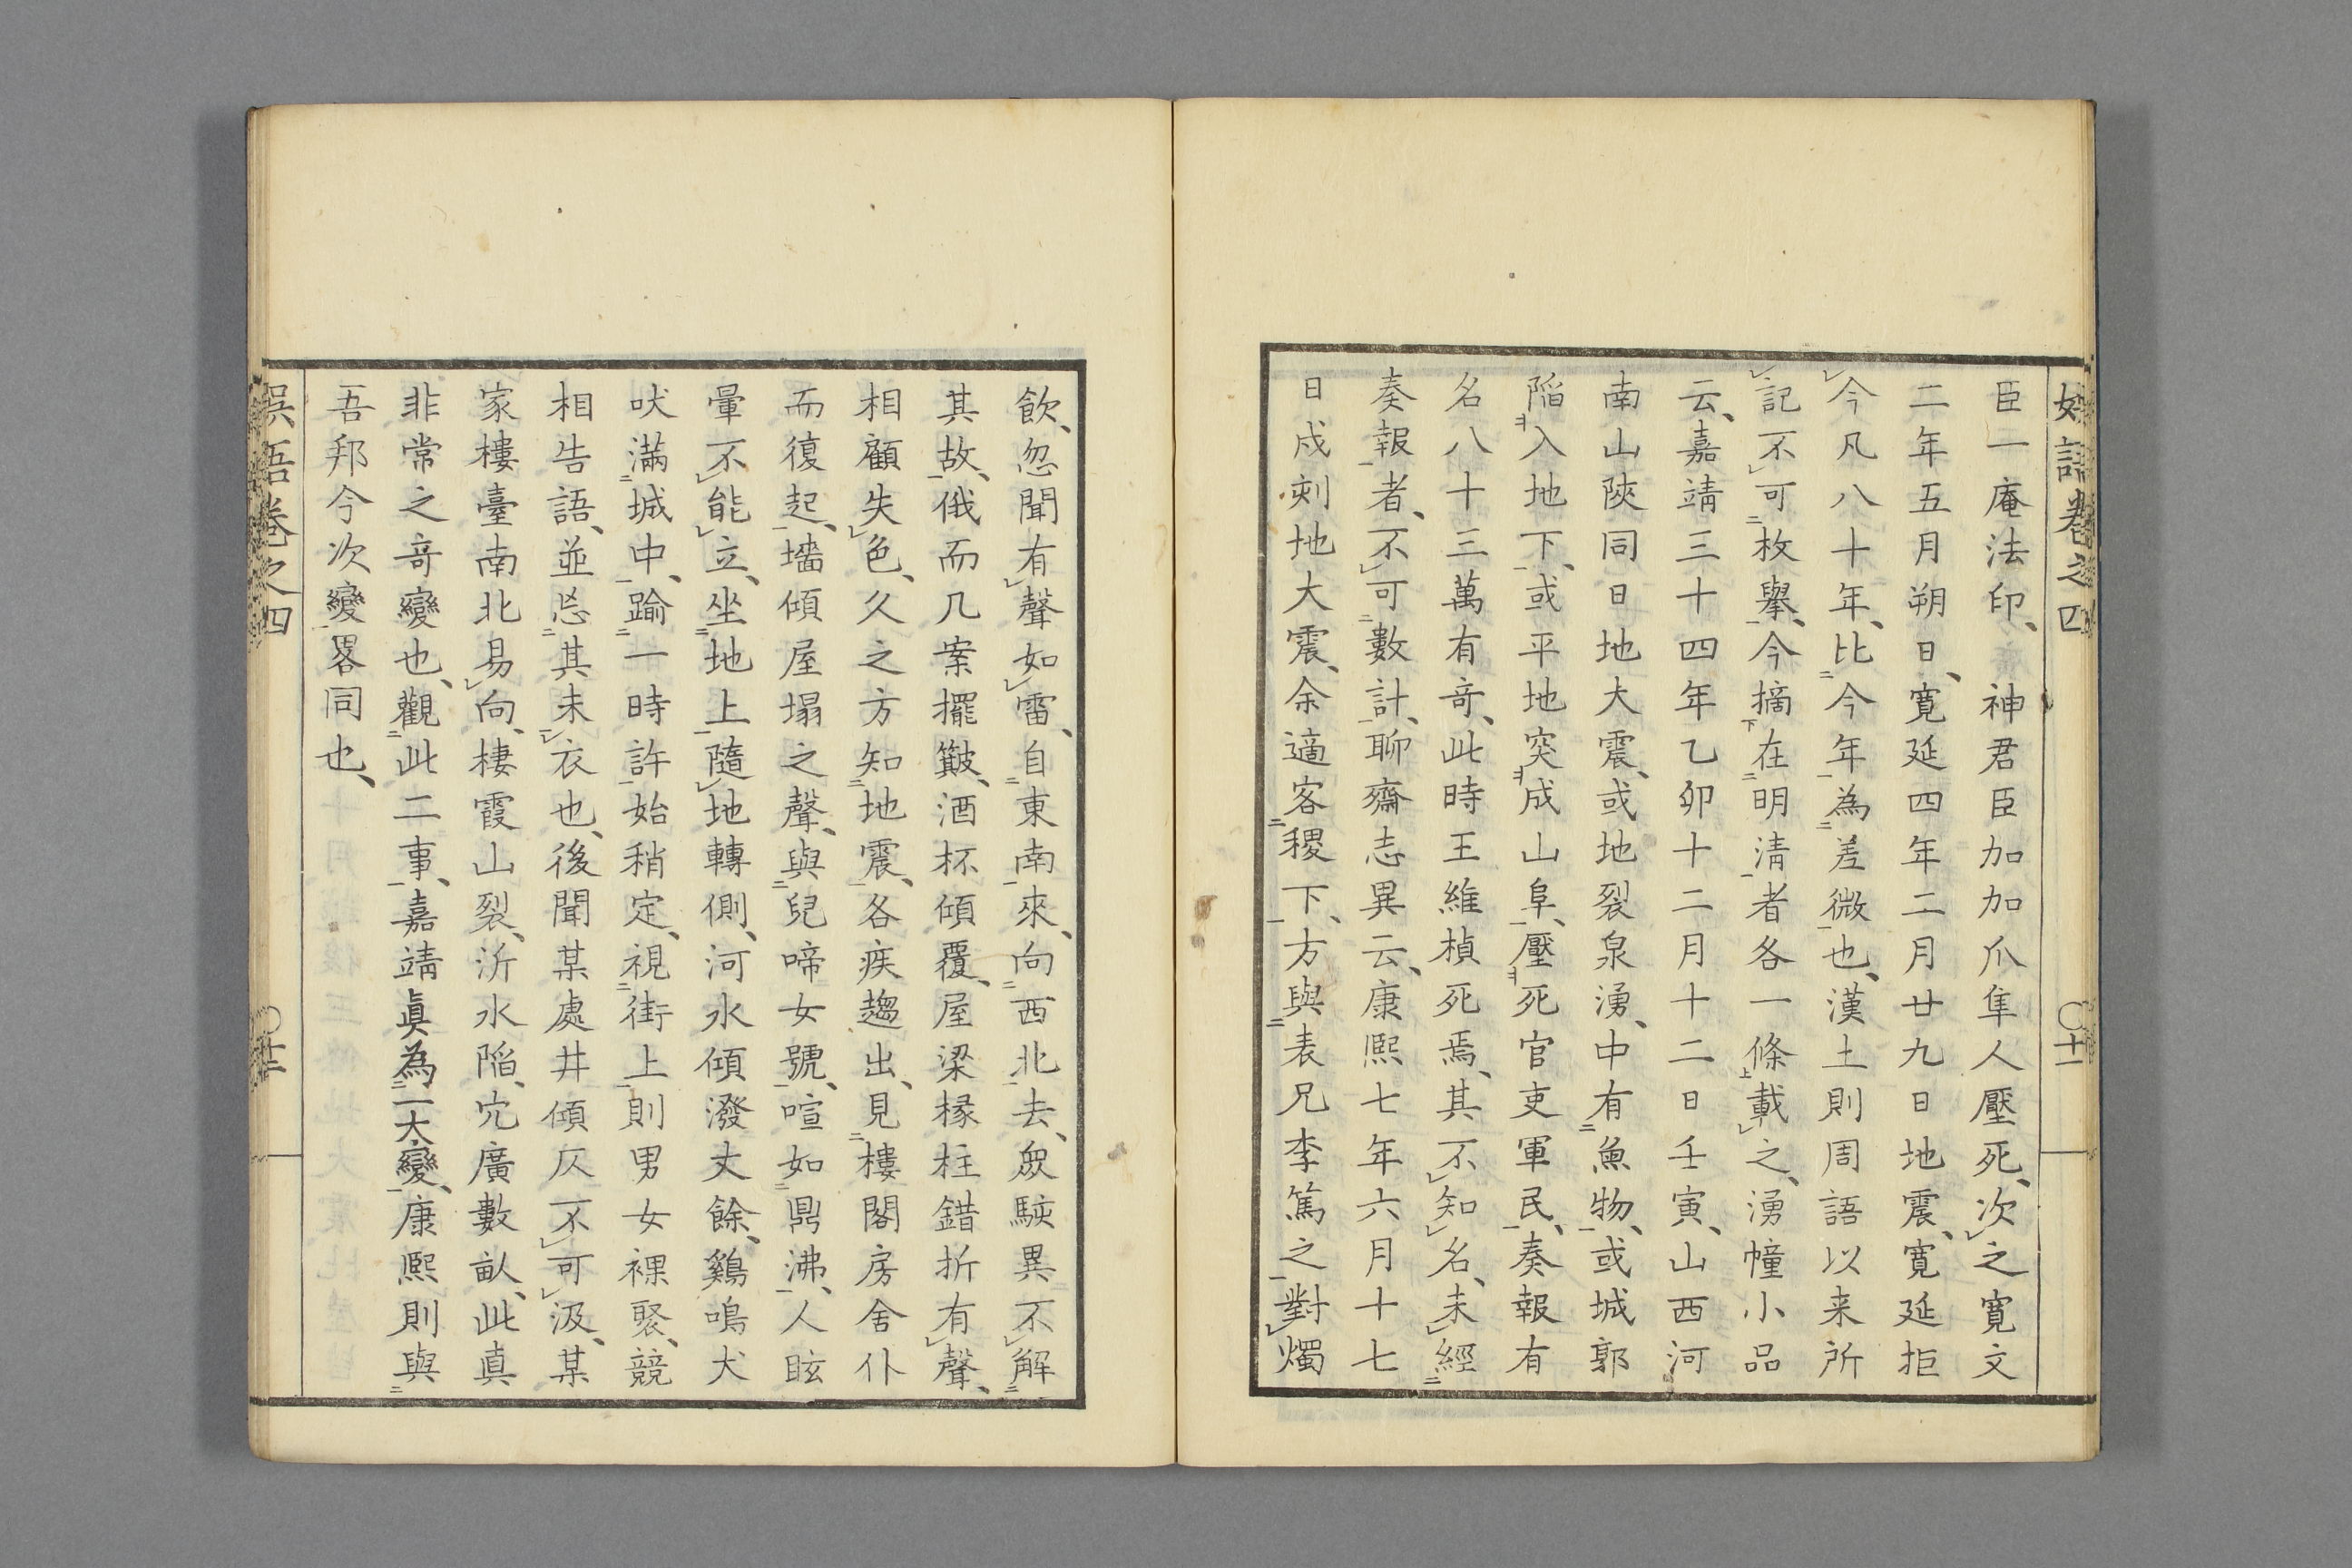 臣一庵法印、神君臣加加爪隼人壓死、次之寛文
二年五月朔日、寛延四年二月廿九日地震、寛延拒
今凡八十年、比今年為差微也、漢土則周語以来所
記不可枚擧、今摘在明淸者各一條載之、湧幢小品
云、嘉靖三十四年乙卯十二月十二日壬寅、山西河
南山陝同日地大震、或地裂泉湧、中有魚物、或城郭
陷入地下、或平地突成山阜、壓死官吏軍民、奏報有
名八十三萬有竒、此時王維楨死焉、其不知名、未經
奏報者、不可數計、聊齋志異云、康熙七年六月十七
日戌刻地大震、余適客稷下、方與表兄李篤之對燭
飲、忽聞有聲如雷、自東南來、向西北去、衆駭異不解
其故、俄而几案擺簸、酒杯傾覆、屋梁椽柱錯折有聲、
相顧失色、久之方知地震、各疾趨出、見樓閣房舍仆
而復起、墻傾屋塌之聲、與兒啼女號、喧如鼎沸、人眩
暈不能立、坐地上隨地轉側、河水傾潑丈餘、鷄鳴犬
吠滿城中、踰一時許始稍定、視街上則男女裸聚、競
相告語、並忘其未衣也、後聞某處井傾仄不可汲、某
家樓臺南北易向、棲霞山裂、沂水陷、穴廣數畝、此真
非常之竒變也、觀此二事、嘉靖眞為一大變、康熙則與
吾邦今次變畧同也、